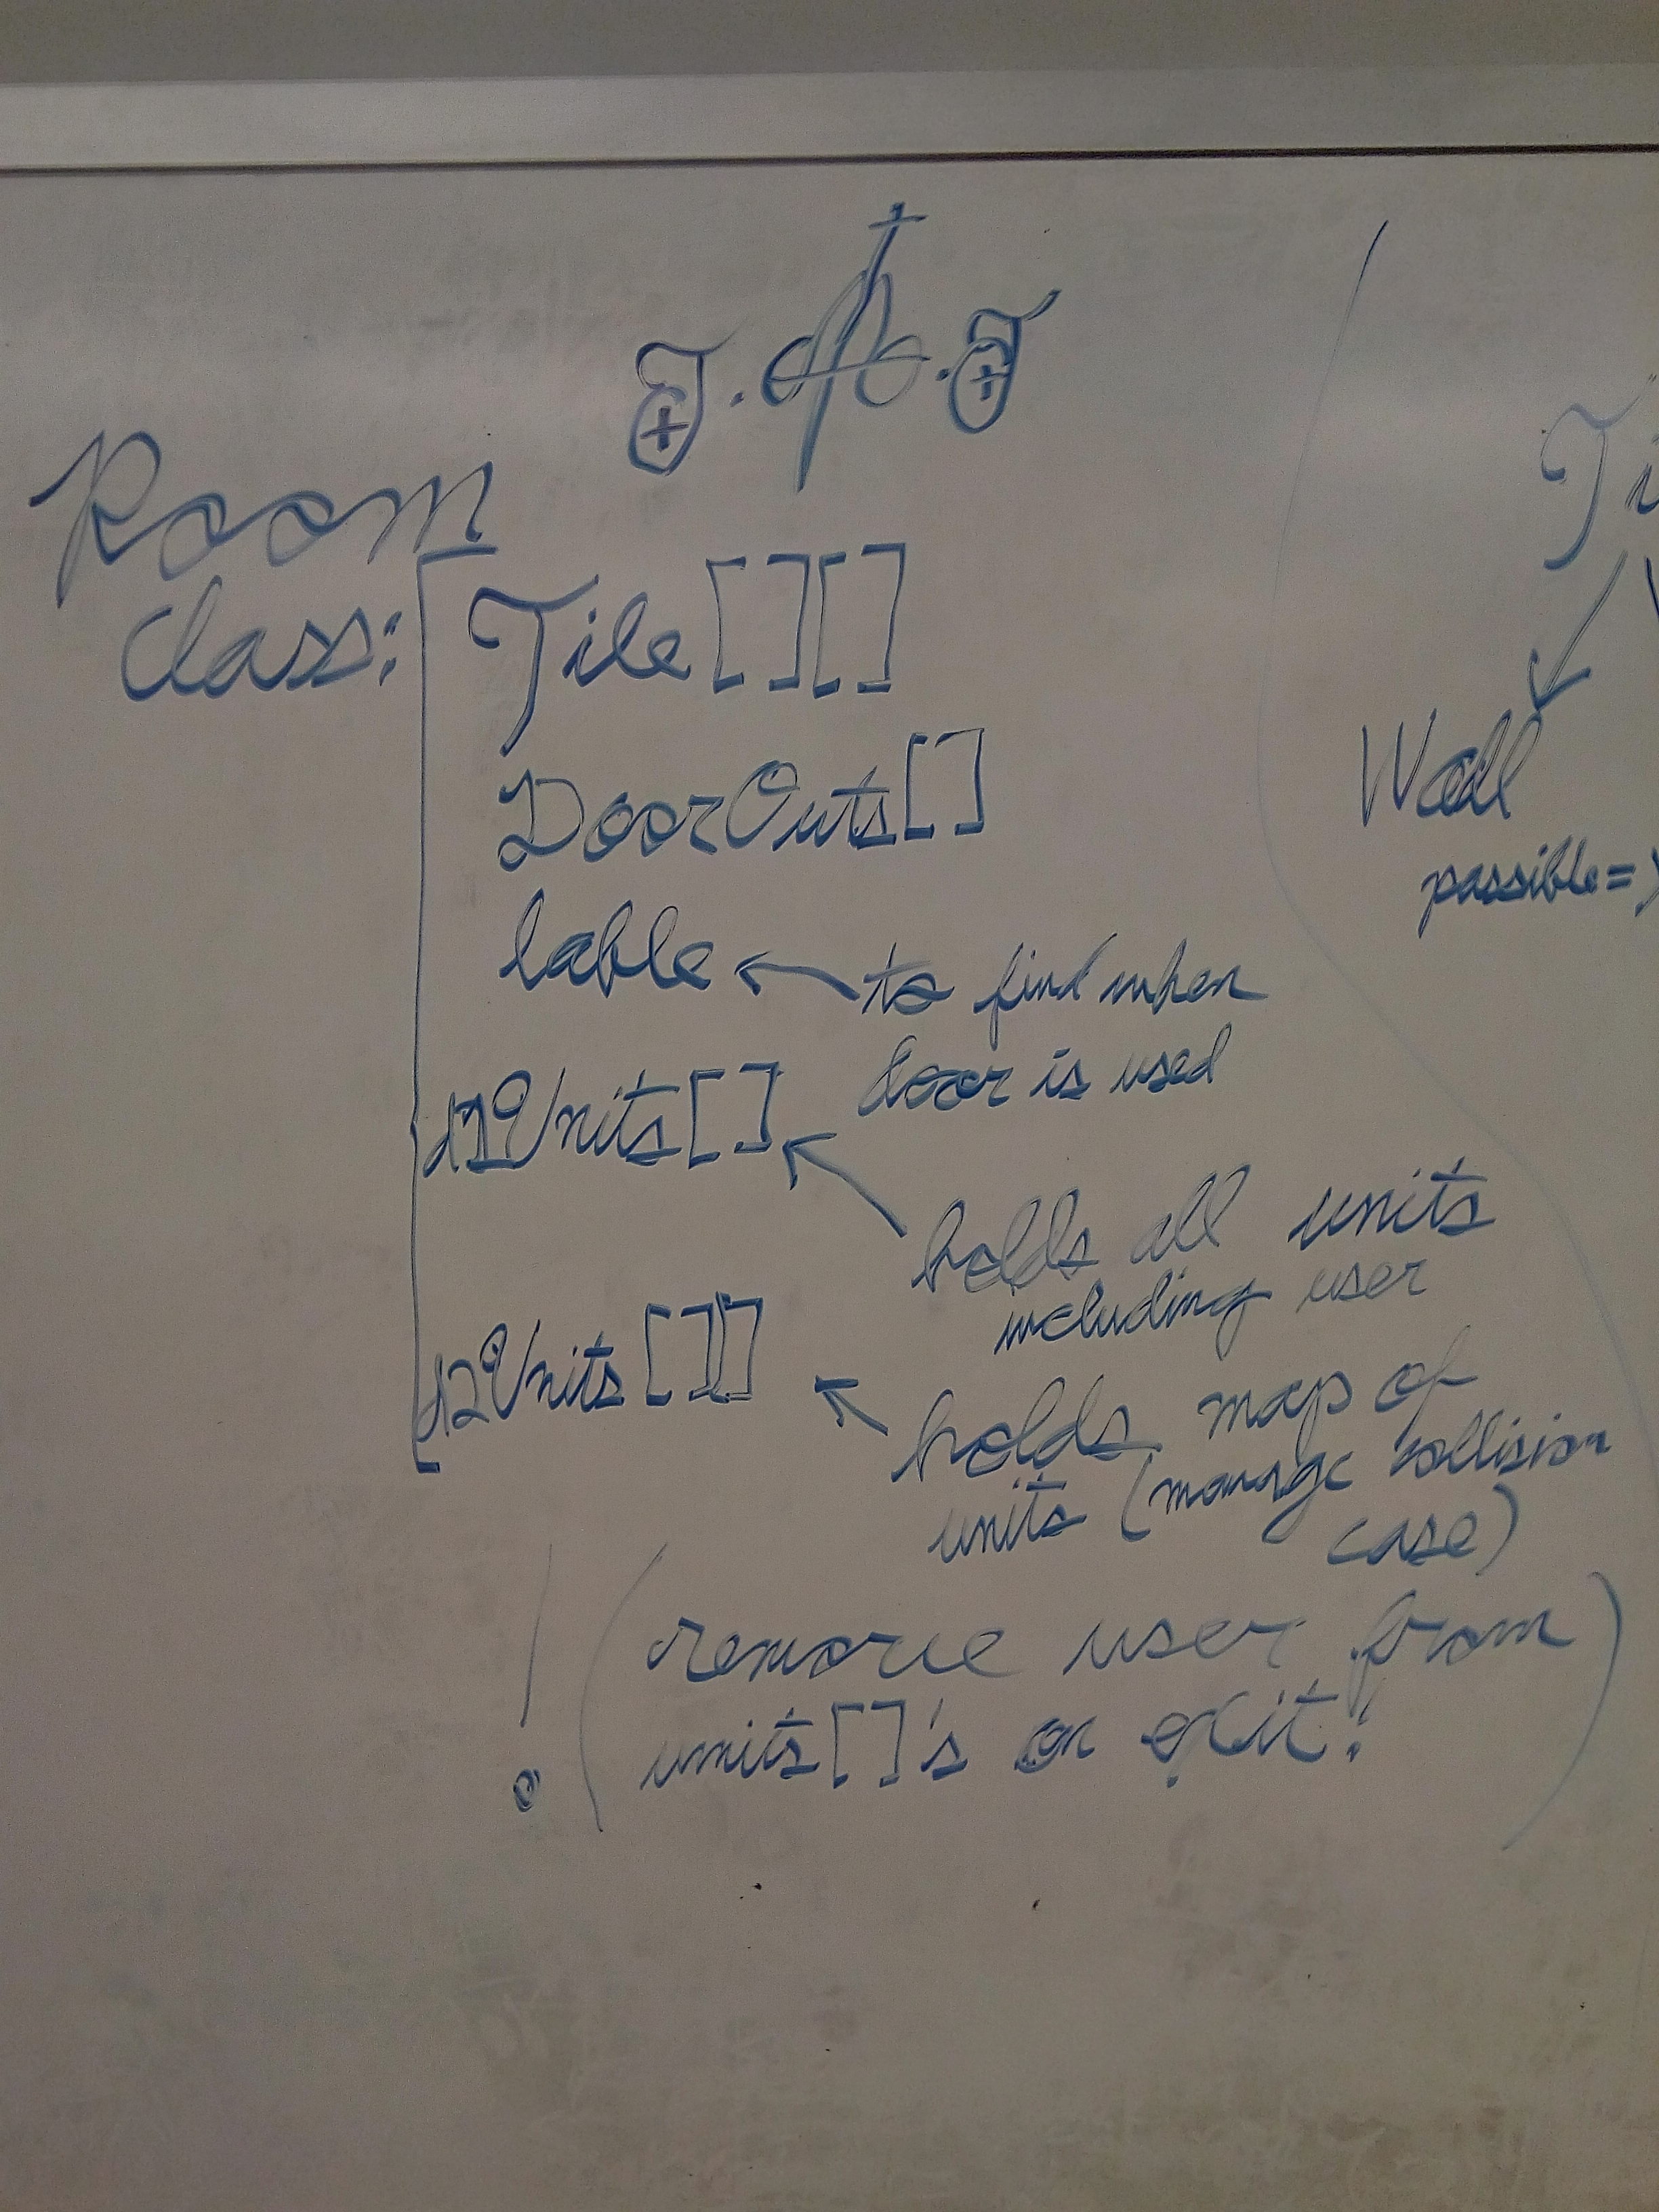 Room
Class:
Tile[][]
DoorOuts[]
lable
to find when
door is used
d1Units[]
holds all units
including user
d2Units[][]
holds map of
units (manage collision
case)
! (remove user from
units[]'s on exit!)
Ti
Wall
passible=